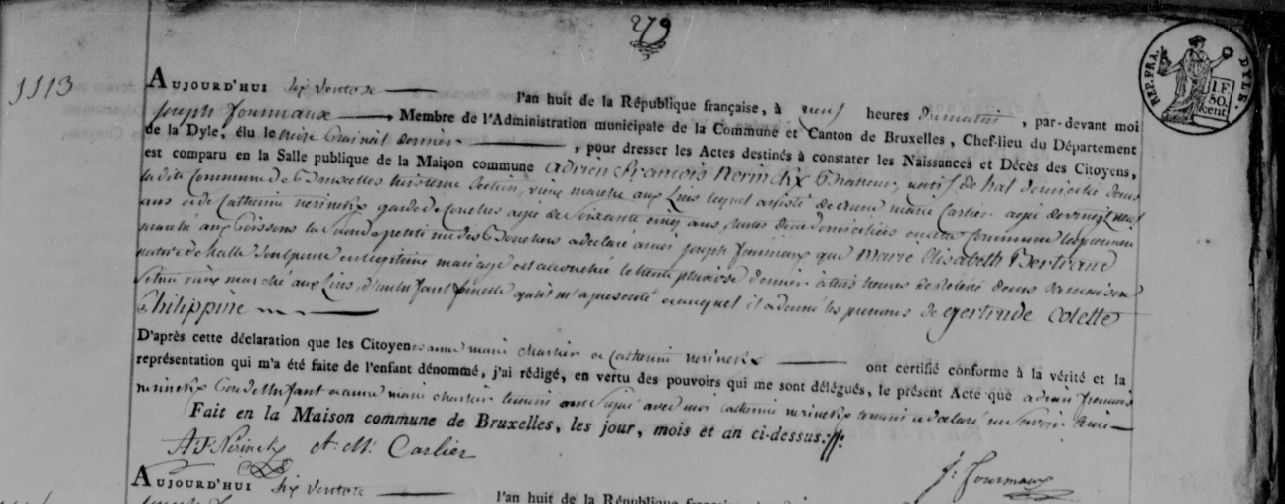 279
1113
REP. FRA. DYLE.
1 F. 50 cent.
AUJOURD'HUI six ventose l'an huit de la République française, à neuf heures du matin, par-devant moi
Joseph Fournaux Membre de l'Administration municipale de la Commune et Canton de Bruxelles, Chef-lieu du Département
de la Dyle, élu le treize dernier, pour dresser les Actes destinés à constater les Naissances et Décès des Citoyens,
est comparu en la Salle publique de la Maison commune adrien François Nerinckx natif de hal domicilié dans
la dite Commune de Bruxelles huitieme Section, marché aux lequel assisté de anne marie Carlier agée de vingt neuf
ans et de Catherine nerinckx garde de Couches agée de Soixante cinq ans toutes deux domiciliées en cette Commune la premiere
marché aux Poissons la Seconde petite rue des Bouchers a déclaré à moi joseph fournaux que Marie Elisabeth Bertrand
native de halle Son Epouse en légitime mariage est accouchée le trente pluviose dernier à trois heures de relevé dans Sa maison
Située marché aux d'un Enfant femelle qu'il m'a presenté et auquel il a donné les prenoms de gertrude Colette
Philippine
D'après cette déclaration que les Citoyennes anne marie chartier et Catherine nerinckx ont certifié conforme à la vérité et la
représentation qui m'a été faite de l'enfant dénommé, j'ai rédigé, en vertu des pouvoirs qui me sont délégués, le présent Acte que adrien françois
nerinckx l'Enfant et anne marie chartier temoin ont Signé avec moi Catherine nerinckx temoin a déclaré ne Savoir
Fait en la Maison commune de Bruxelles, les jour, mois et an ci-dessus.
A F Nerinckx A. M. Carlier J. Fournaux
AUJOURD'HUI Six ventose l'an huit de la République française, à